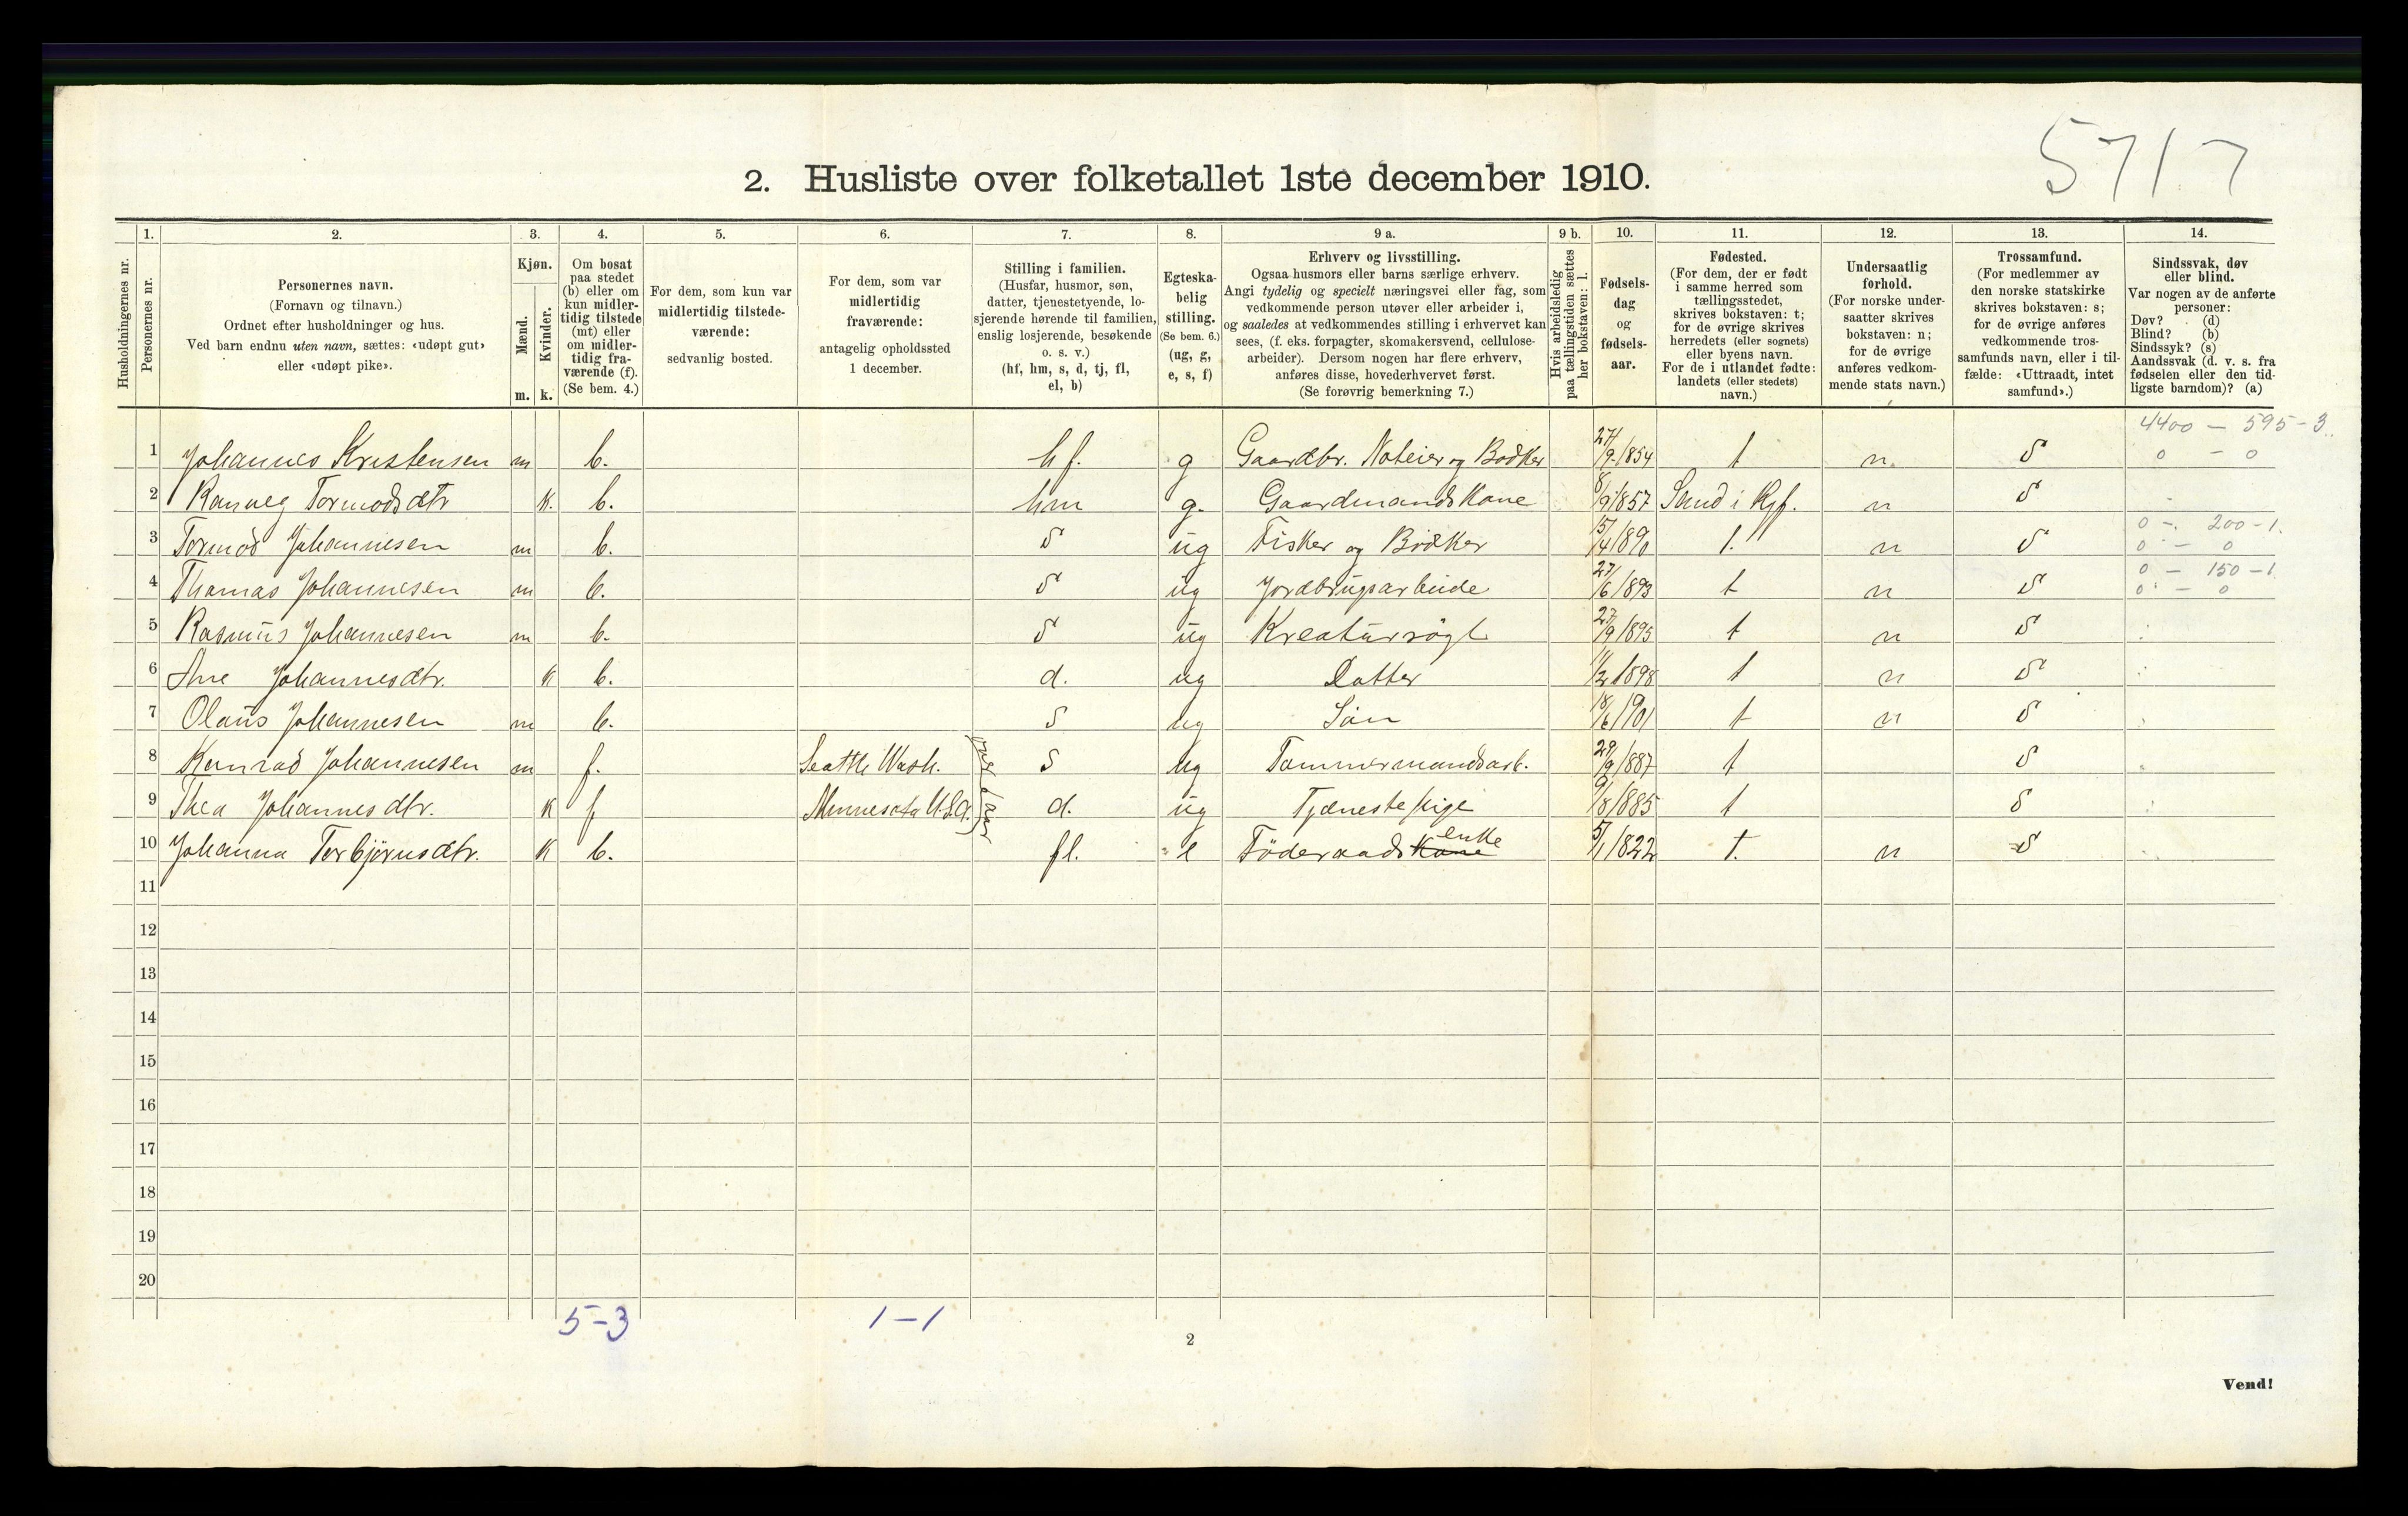 5717
2. Husliste over folketallet 1ste december 1910.
1. 2. 3. 4. 5. 6. 7. 8. 9 a. 9 b. 10. 11. 12. 13. 14.
Husholdningernes nr.
Personernes nr.
Personernes navn.
(Fornavn og tilnavn.)
Ordnet efter husholdninger og hus.
Ved barn endnu uten navn, sættes: «udøpt gut»
eller «udøpt pike».
Kjøn.
Mænd.
Kvinder.
m. k.
Om bosat
paa stedet
(b) eller om
kun midler-
tidig tilstede
(mt) eller
om midler-
tidig fra-
værende (f).
(Se bem. 4.)
For dem, som kun var
midlertidig tilstede-
værende:
sedvanlig bosted.
For dem, som var
midlertidig
fraværende:
antagelig opholdssted
1 december.
Stilling i familien.
(Husfar, husmor, søn,
datter, tjenestetyende, lo-
sjerende hørende til familien,
enslig losjerende, besøkende
o. s. v.)
(hf, hm, s, d, tj, fl,
el, b)
Egteska-
belig
stilling.
(Se bem. 6.)
(ug, g,
e, s, f)
Erhverv og livsstilling.
Ogsaa husmors eller barns særlige erhverv.
Angi tydelig og specielt næringsvei eller fag, som
vedkommende person utøver eller arbeider i,
og saaledes at vedkommendes stilling i erhvervet kan
sees, (f. eks. forpagter, skomakersvend, cellulose-
arbeider). Dersom nogen har flere erhverv,
anføres disse, hovederhvervet først.
(Se forøvrig bemerkning 7.)
Hvis arbeidsledig
paa tællingstiden sættes
her bokstaven: l.
Fødsels-
dag
og
fødsels-
aar.
Fødested.
(For dem, der er født
i samme herred som
tællingsstedet,
skrives bokstaven: t;
for de øvrige skrives
herredets (eller sognets)
eller byens navn.
For de i utlandet fødte:
landets (eller stedets)
navn.)
Undersaatlig
forhold.
(For norske under-
saatter skrives
bokstaven: n;
for de øvrige
anføres vedkom-
mende stats navn.)
Trossamfund.
(For medlemmer av
den norske statskirke
skrives bokstaven: s;
for de øvrige anføres
vedkommende tros-
samfunds navn, eller i til-
fælde: «Uttraadt, intet
samfund».)
Sindssvak, døv
eller blind.
Var nogen av de anførte
personer:
Døv? (d)
Blind? (b)
Sindssyk? (s)
Aandssvak (d. v. s. fra
fødselen eller den tid-
ligste barndom)? (a)
4400 – 595 – 3.
1 Johannes Kristensen m b. hf. g Gaardbr. Noteier og Bødker 24/9 1854 t n. S 0 – 0
2 Ranveg Tormodsdtr k. b. hm g. Gaardmandskone 8/9 1857 Sand i Ryf. n S
0 – 200 – 1.
3 Tormod Johannesen m b. S ug Fisker og Bødker 15/4 1890 t. n S 0 – 0
0 – 150 – 1
4 Thomas Johannesen m b. S ug Jordbrugsarbeide 27/6 1893 t n S 0 – 0
5 Rasmus Johannesen m b. S ug Kreaturrøgt 27/9 1895 t n S
6 Ane Johannesdtr. k b. d. ug Datter 11/2 1898 t n S
7 Olaus Johannesen m b. S ug Søn 18/6 1901 t n S
8 Konrad Johannesen m f. Seattle Wash. S ug Tømmermandsarb. 29/9 1887 t S
9 Thea Johannesdtr. k f. Minnesota U.S.A. d. ug Tjenestepige 9/8 1885 t S
10 Johanna Torbjørnsdtr. k b. fl. e Föderaadskone enke 5/1 1822 t. n S
11
12
13
14
15
16
17
18
19
20
5–3 1–1
2
Vend!